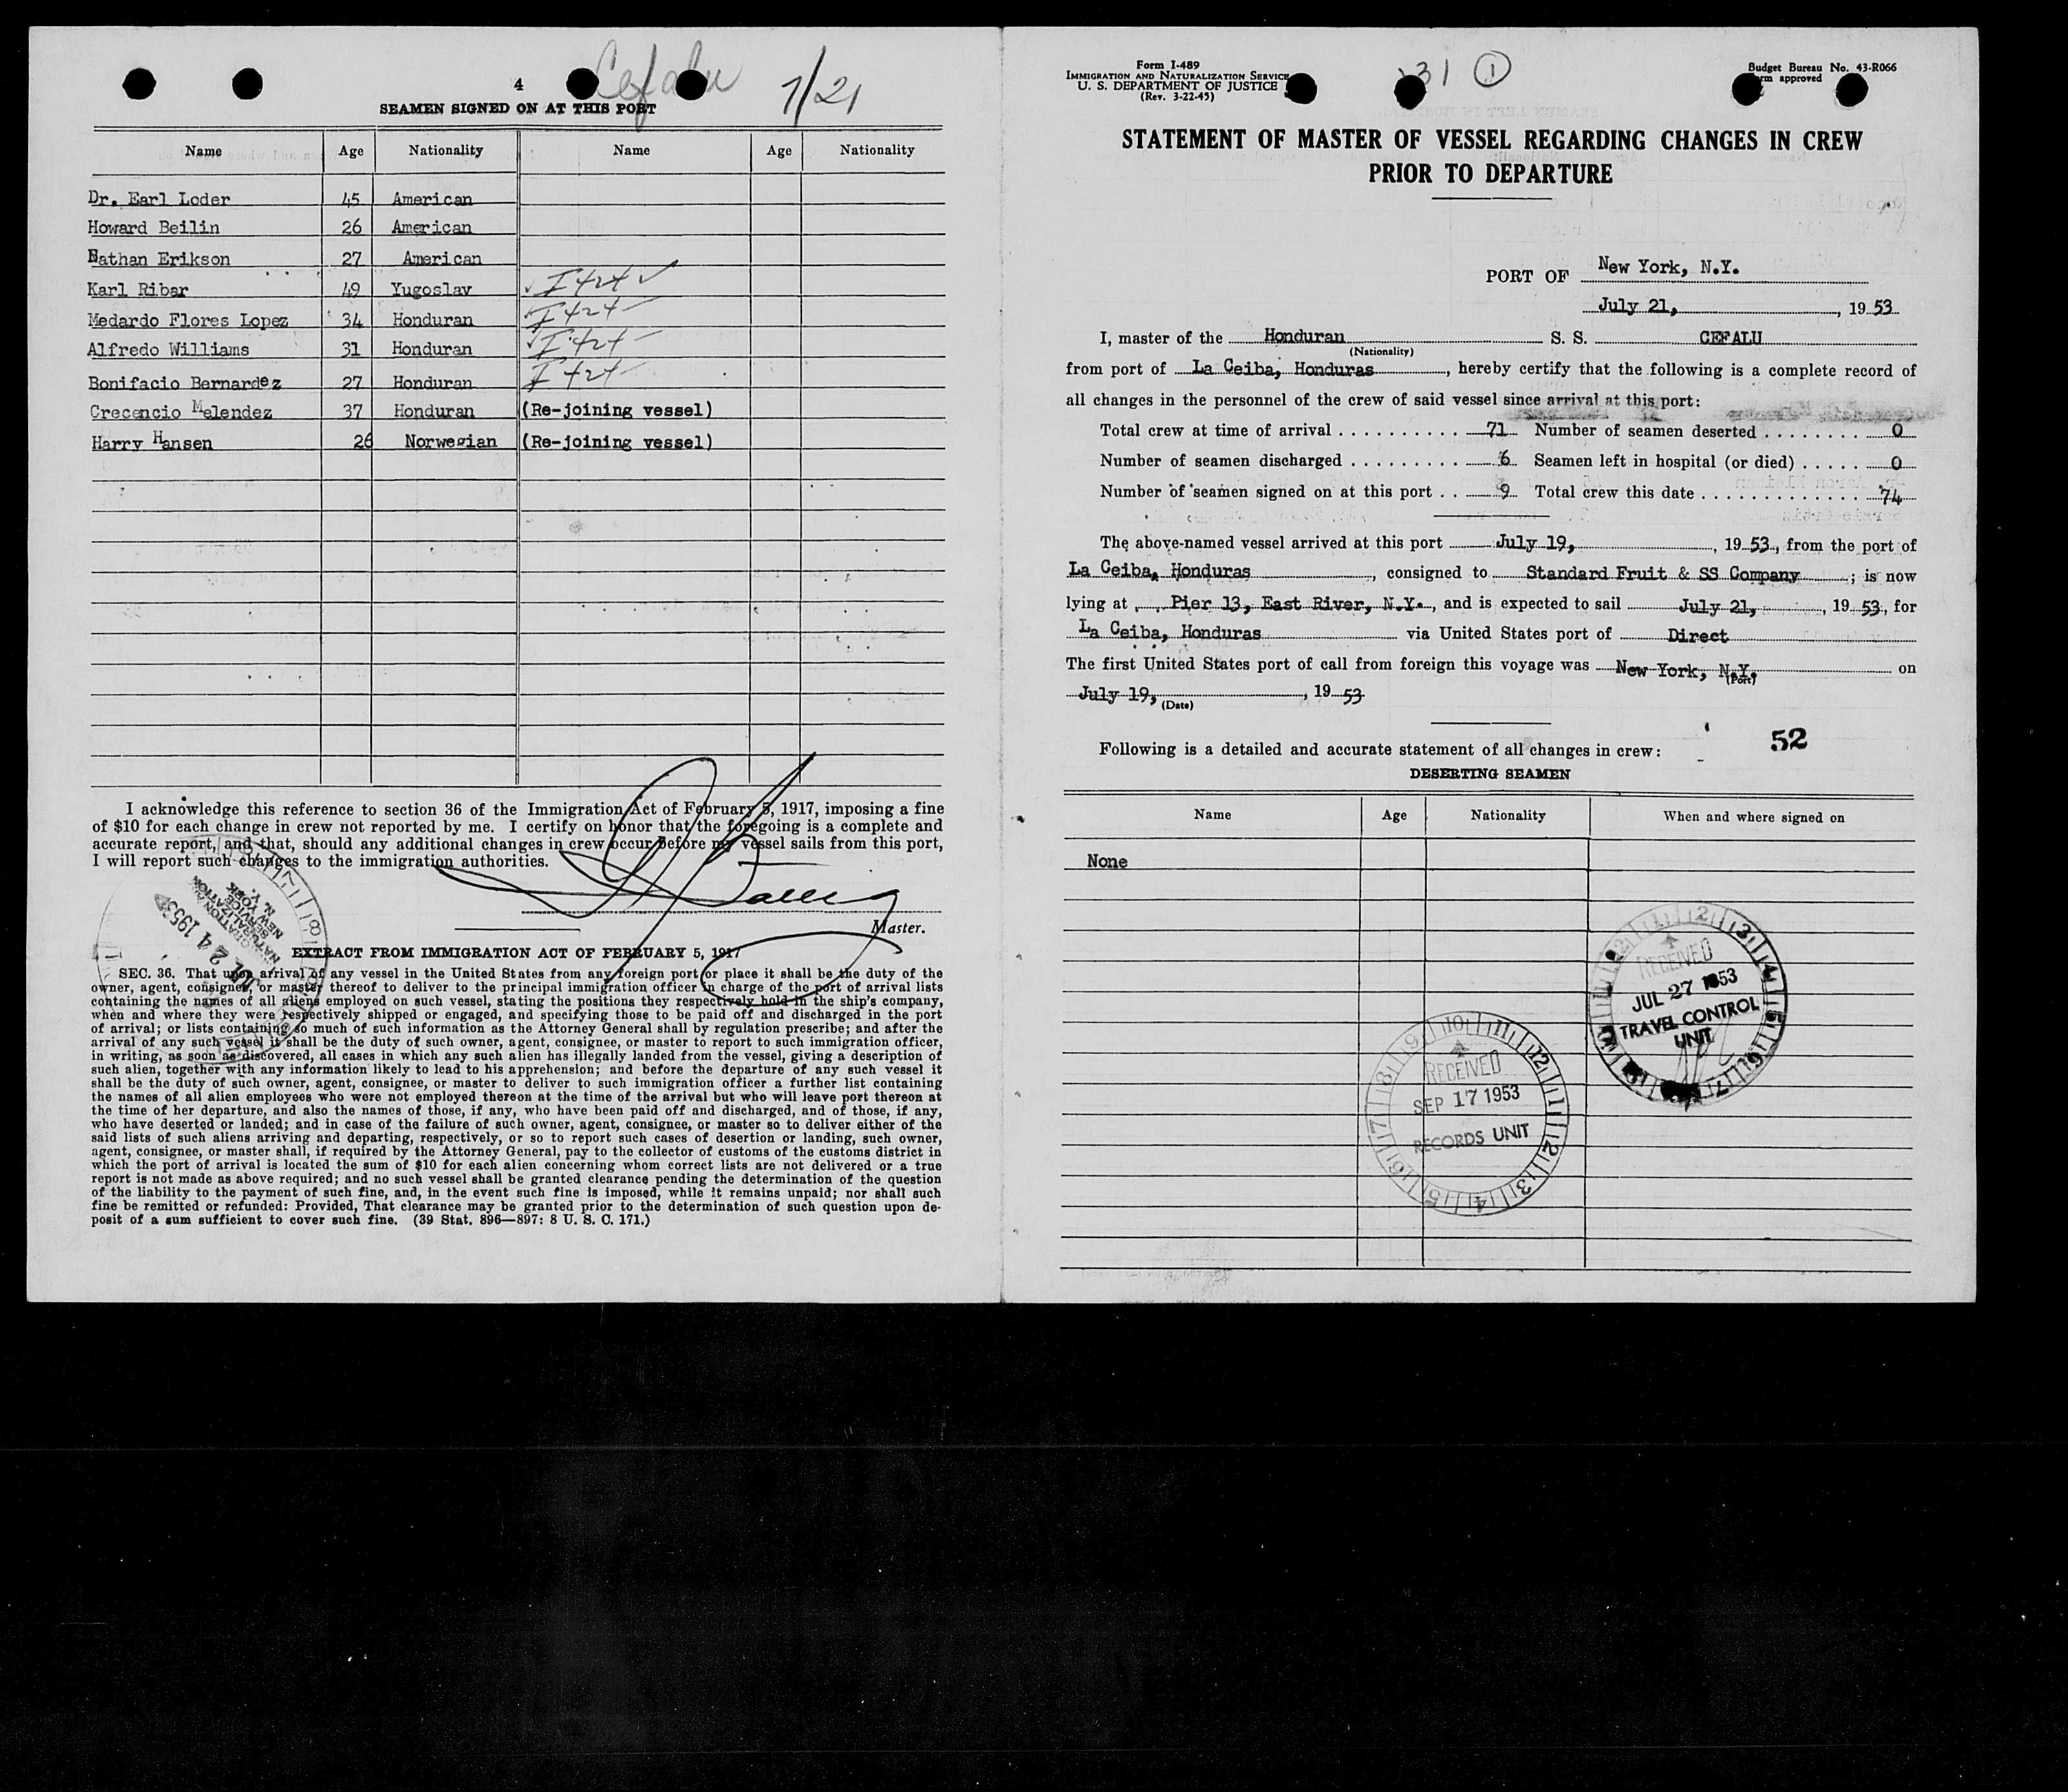 4
Cefalu 7/21
SEAMEN SIGNED ON AT THIS PORT
Name Age Nationality Name Age Nationality
Dr. Earl Loder 45 American
Howard Beilin 26 American
Nathan Erikson 27 American
Karl Ribar 49 Yugoslav I 424
Medardo Flores Lopez 34 Honduran I 424
Alfredo Williams 31 Honduran I 424
Bonifacio Bernardez 27 Honduran I 424
Crecencio Melendez 37 Honduran (Re-joining vessel)
Harry Hansen 26 Norwegian (Re-joining vessel)
I acknowledge this reference to section 36 of the Immigration Act of February 5, 1917, imposing a fine
of $10 for each change in crew not reported by me. I certify on honor that the foregoing is a complete and
accurate report, and that, should any additional changes in crew occur before my vessel sails from this port,
I will report such changes to the immigration authorities.
Master.
EXTRACT FROM IMMIGRATION ACT OF FEBRUARY 5, 1917
SEC. 36. That upon arrival of any vessel in the United States from any foreign port or place it shall be the duty of the
owner, agent, consignee, or master thereof to deliver to the principal immigration officer in charge of the port of arrival lists
containing the names of all aliens employed on such vessel, stating the positions they respectively hold in the ship's company,
when and where they were respectively shipped or engaged, and specifying those to be paid off and discharged in the port
of arrival; or lists containing so much of such information as the Attorney General shall by regulation prescribe; and after the
arrival of any such vessel it shall be the duty of such owner, agent, consignee, or master to report to such immigration officer,
in writing, as soon as discovered, all cases in which any such alien has illegally landed from the vessel, giving a description of
such alien, together with any information likely to lead to his apprehension; and before the departure of any such vessel it
shall be the duty of such owner, agent, consignee, or master to deliver to such immigration officer a further list containing
the names of all alien employees who were not employed thereon at the time of the arrival but who will leave port thereon at
the time of her departure, and also the names of those, if any, who have been paid off and discharged, and of those, if any,
who have deserted or landed; and in case of the failure of such owner, agent, consignee, or master so to deliver either of the
said lists of such aliens arriving and departing, respectively, or so to report such cases of desertion or landing, such owner,
agent, consignee, or master shall, if required by the Attorney General, pay to the collector of customs of the customs district in
which the port of arrival is located the sum of $10 for each alien concerning whom correct lists are not delivered or a true
report is not made as above required; and no such vessel shall be granted clearance pending the determination of the question
of the liability to the payment of such fine, and, in the event such fine is imposed, while it remains unpaid; nor shall such
fine be remitted or refunded: Provided, That clearance may be granted prior to the determination of such question upon de-
posit of a sum sufficient to cover such fine. (39 Stat. 896—897: 8 U. S. C. 171.)
Form I-489
IMMIGRATION AND NATURALIZATION SERVICE
U. S. DEPARTMENT OF JUSTICE
(Rev. 3-22-45)
31 1
Budget Bureau No. 43-R066
approved
STATEMENT OF MASTER OF VESSEL REGARDING CHANGES IN CREW
PRIOR TO DEPARTURE
PORT OF New York, N.Y.
July 21, , 19 53
I, master of the Honduran S. S. CEFALU
(Nationality)
from port of La Ceiba, Honduras , hereby certify that the following is a complete record of
all changes in the personnel of the crew of said vessel since arrival at this port:
Total crew at time of arrival 71 Number of seamen deserted 0
Number of seamen discharged 6 Seamen left in hospital (or died) 0
Number of seamen signed on at this port 9 Total crew this date 74
The above-named vessel arrived at this port July 19, , 19 53, from the port of
La Ceiba, Honduras , consigned to Standard Fruit & SS Company ; is now
lying at Pier 13, East River, N.Y. , and is expected to sail July 21, , 19 53, for
La Ceiba, Honduras via United States port of Direct
The first United States port of call from foreign this voyage was New York, N.Y. on
(Port)
July 19, , 19 53
(Date)
52
Following is a detailed and accurate statement of all changes in crew:
DESERTING SEAMEN
Name Age Nationality When and where signed on
None
RECEIVED
JUL 27 1953
TRAVEL CONTROL
UNIT
RECEIVED
SEP 17 1953
RECORDS UNIT